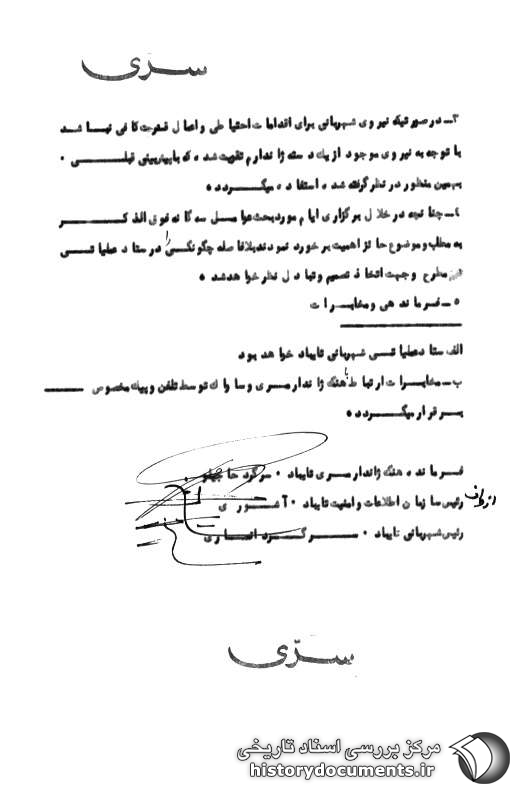 سرّی
۳ـ در صورتیکه نیروی شهربانی برای اقدامات احتیاطی و اعمال قدرت کافی نباشد
با توجه به نیروی موجود از یک دسته ژاندارم تقویت شده که با پیش‌بینی قبلی ۰
بهمین منظور در نظر گرفته شده استفاده میگردد ۰
۴ـ چنانچه در خلال برگزاری ایام مورد بحث عوامل سه گانه فوق الذکر
به مطلب و موضوع حائز اهمیت برخورد نمودند بلافاصله چگونگی را در ستاد عملیاتی
مطرح و جهت اتخاذ تصمیم و تبادل نظر خواهد شد ۰
۵ ـ فرماندهی و مخابرات
الف ستاد عملیاتی شهربانی تایباد خواهد بود
ب ـ مخابرات ارتباط با هنگ ژاندارمری و ساواک توسط تلفن و پیک مخصوص
برقرار میگردد ۰
فرمانده هنگ ژاندارمری تایباد ۰ سرگرد
رئیس سازمان اطلاعات و امنیت تایباد ۰ آشوری
از طرف
رئیس شهربانی تایباد ۰ سرگرد انصاری
سرّی
مرکز بررسی اسناد تاریخی
historydocuments.ir